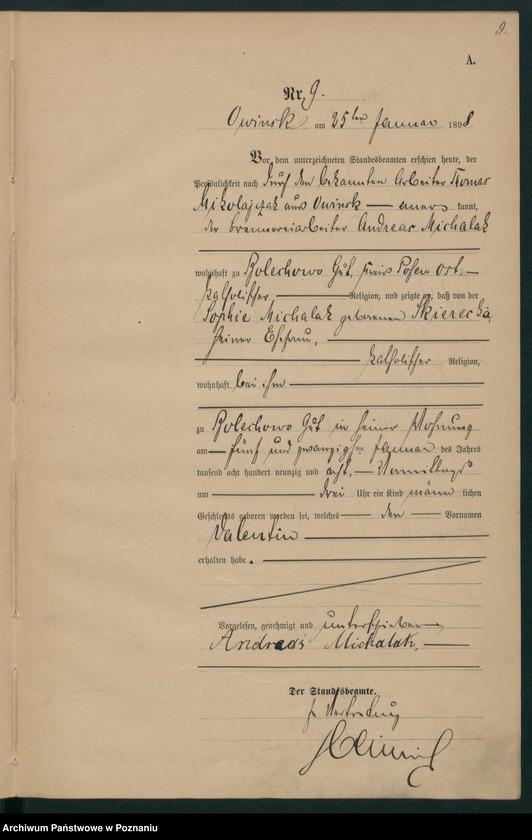 9.
A.
Nr. 9.
Owinsk am 25ten Januar 1898.
Vor dem unterzeichneten Standesbeamten erschien heute, der
Persönlichkeit nach durch den bekannten Arbeiter Thomas
Mikolajczak aus Owinsk — kannt,
der Brennereiarbeiter Andreas Michalak
wohnhaft zu Bolechowo Gut, Kreis Posen Ost, —
katholischer — Religion, und zeigte an, daß von der
Sophie Michalak geborenen Skierecka,
seiner Ehefrau, —
— katholischer Religion,
wohnhaft bei ihm —
zu Bolechowo Gut in seiner Wohnung
am — fünf und zwanzigsten Januar des Jahres
tausend acht hundert neunzig und acht, — Vormittags
um — drei Uhr ein Kind männlichen
Geschlechts geboren worden sei, welches — den — Vornamen
Valentin —
erhalten habe.
Vorgelesen, genehmigt und unterschrieben
Andreas Michalak, —
Der Standesbeamte.
In Vertretung
Archiwum Państwowe w Poznaniu